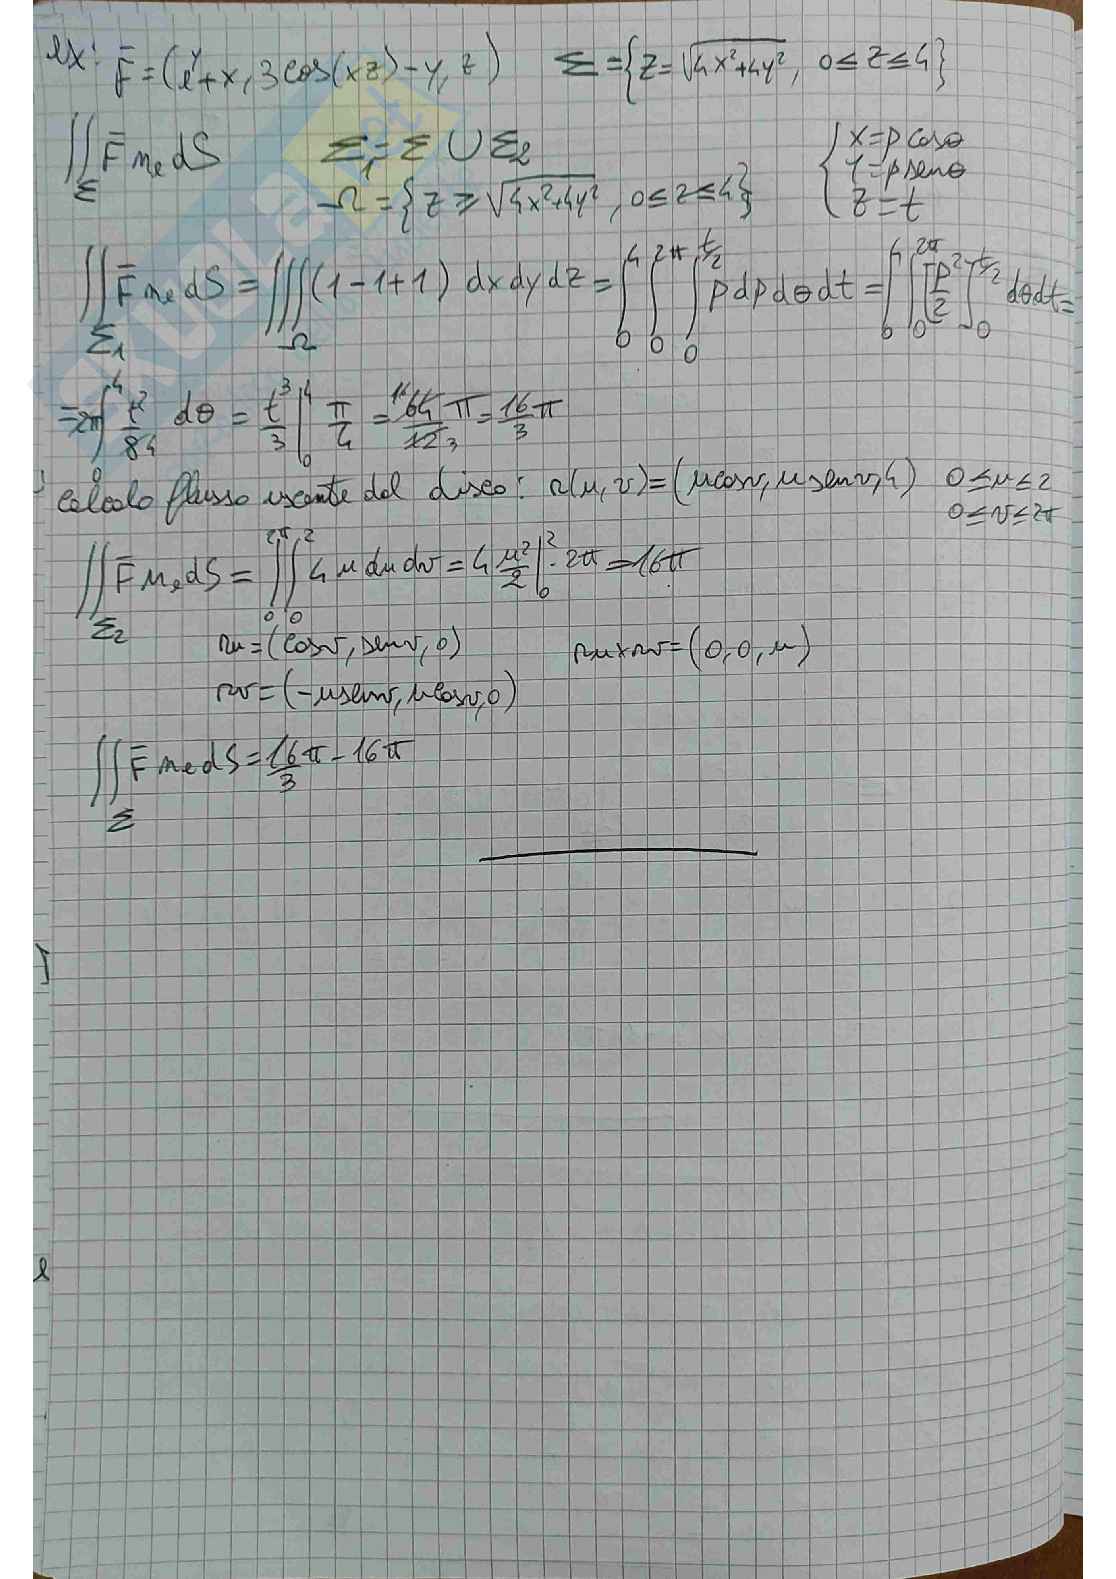 ex: F̅ = (e^y + x, 3cos(xz) - y, z)   Σ = {z = √(4x²+4y²), 0 ≤ z ≤ 4}
∬_Σ F̅ n_e dS   Σ₁ = Σ ∪ Σ₂   { x = ρ cosθ
Ω = {z ≥ √(4x²+4y²), 0 ≤ z ≤ 4}   y = ρ senθ
z = t
∬_Σ₁ F̅ n_e dS = ∭_Ω (1-1+1) dx dy dz = ∫₀⁴ ∫₀^2π ∫₀^t/2 ρ dρ dθ dt = ∫₀⁴ ∫₀^2π [ρ²/2]₀^t/2 dθ dt =
= 2π ∫₀⁴ t²/8 4 dθ = t³/3 |₀⁴ π/4 = 16 64/12 3 π = 16/3 π
calcolo flusso uscente dal disco: r(u, v) = (u cosv, u senv, 4)   0 ≤ u ≤ 2
0 ≤ v ≤ 2π
∬_Σ₂ F̅ n_e dS = ∫₀^2π ∫₀² 4 u du dv = 4 u²/2 |₀² · 2π = 16π
ru = (cosv, senv, 0)   ru × rv = (0, 0, u)
rv = (-u senv, u cosv, 0)
∬_Σ F̅ n_e dS = 16/3 π - 16π